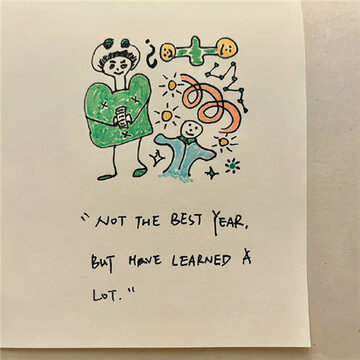 "NOT THE BEST YEAR,
BUT HAVE LEARNED A
LOT."